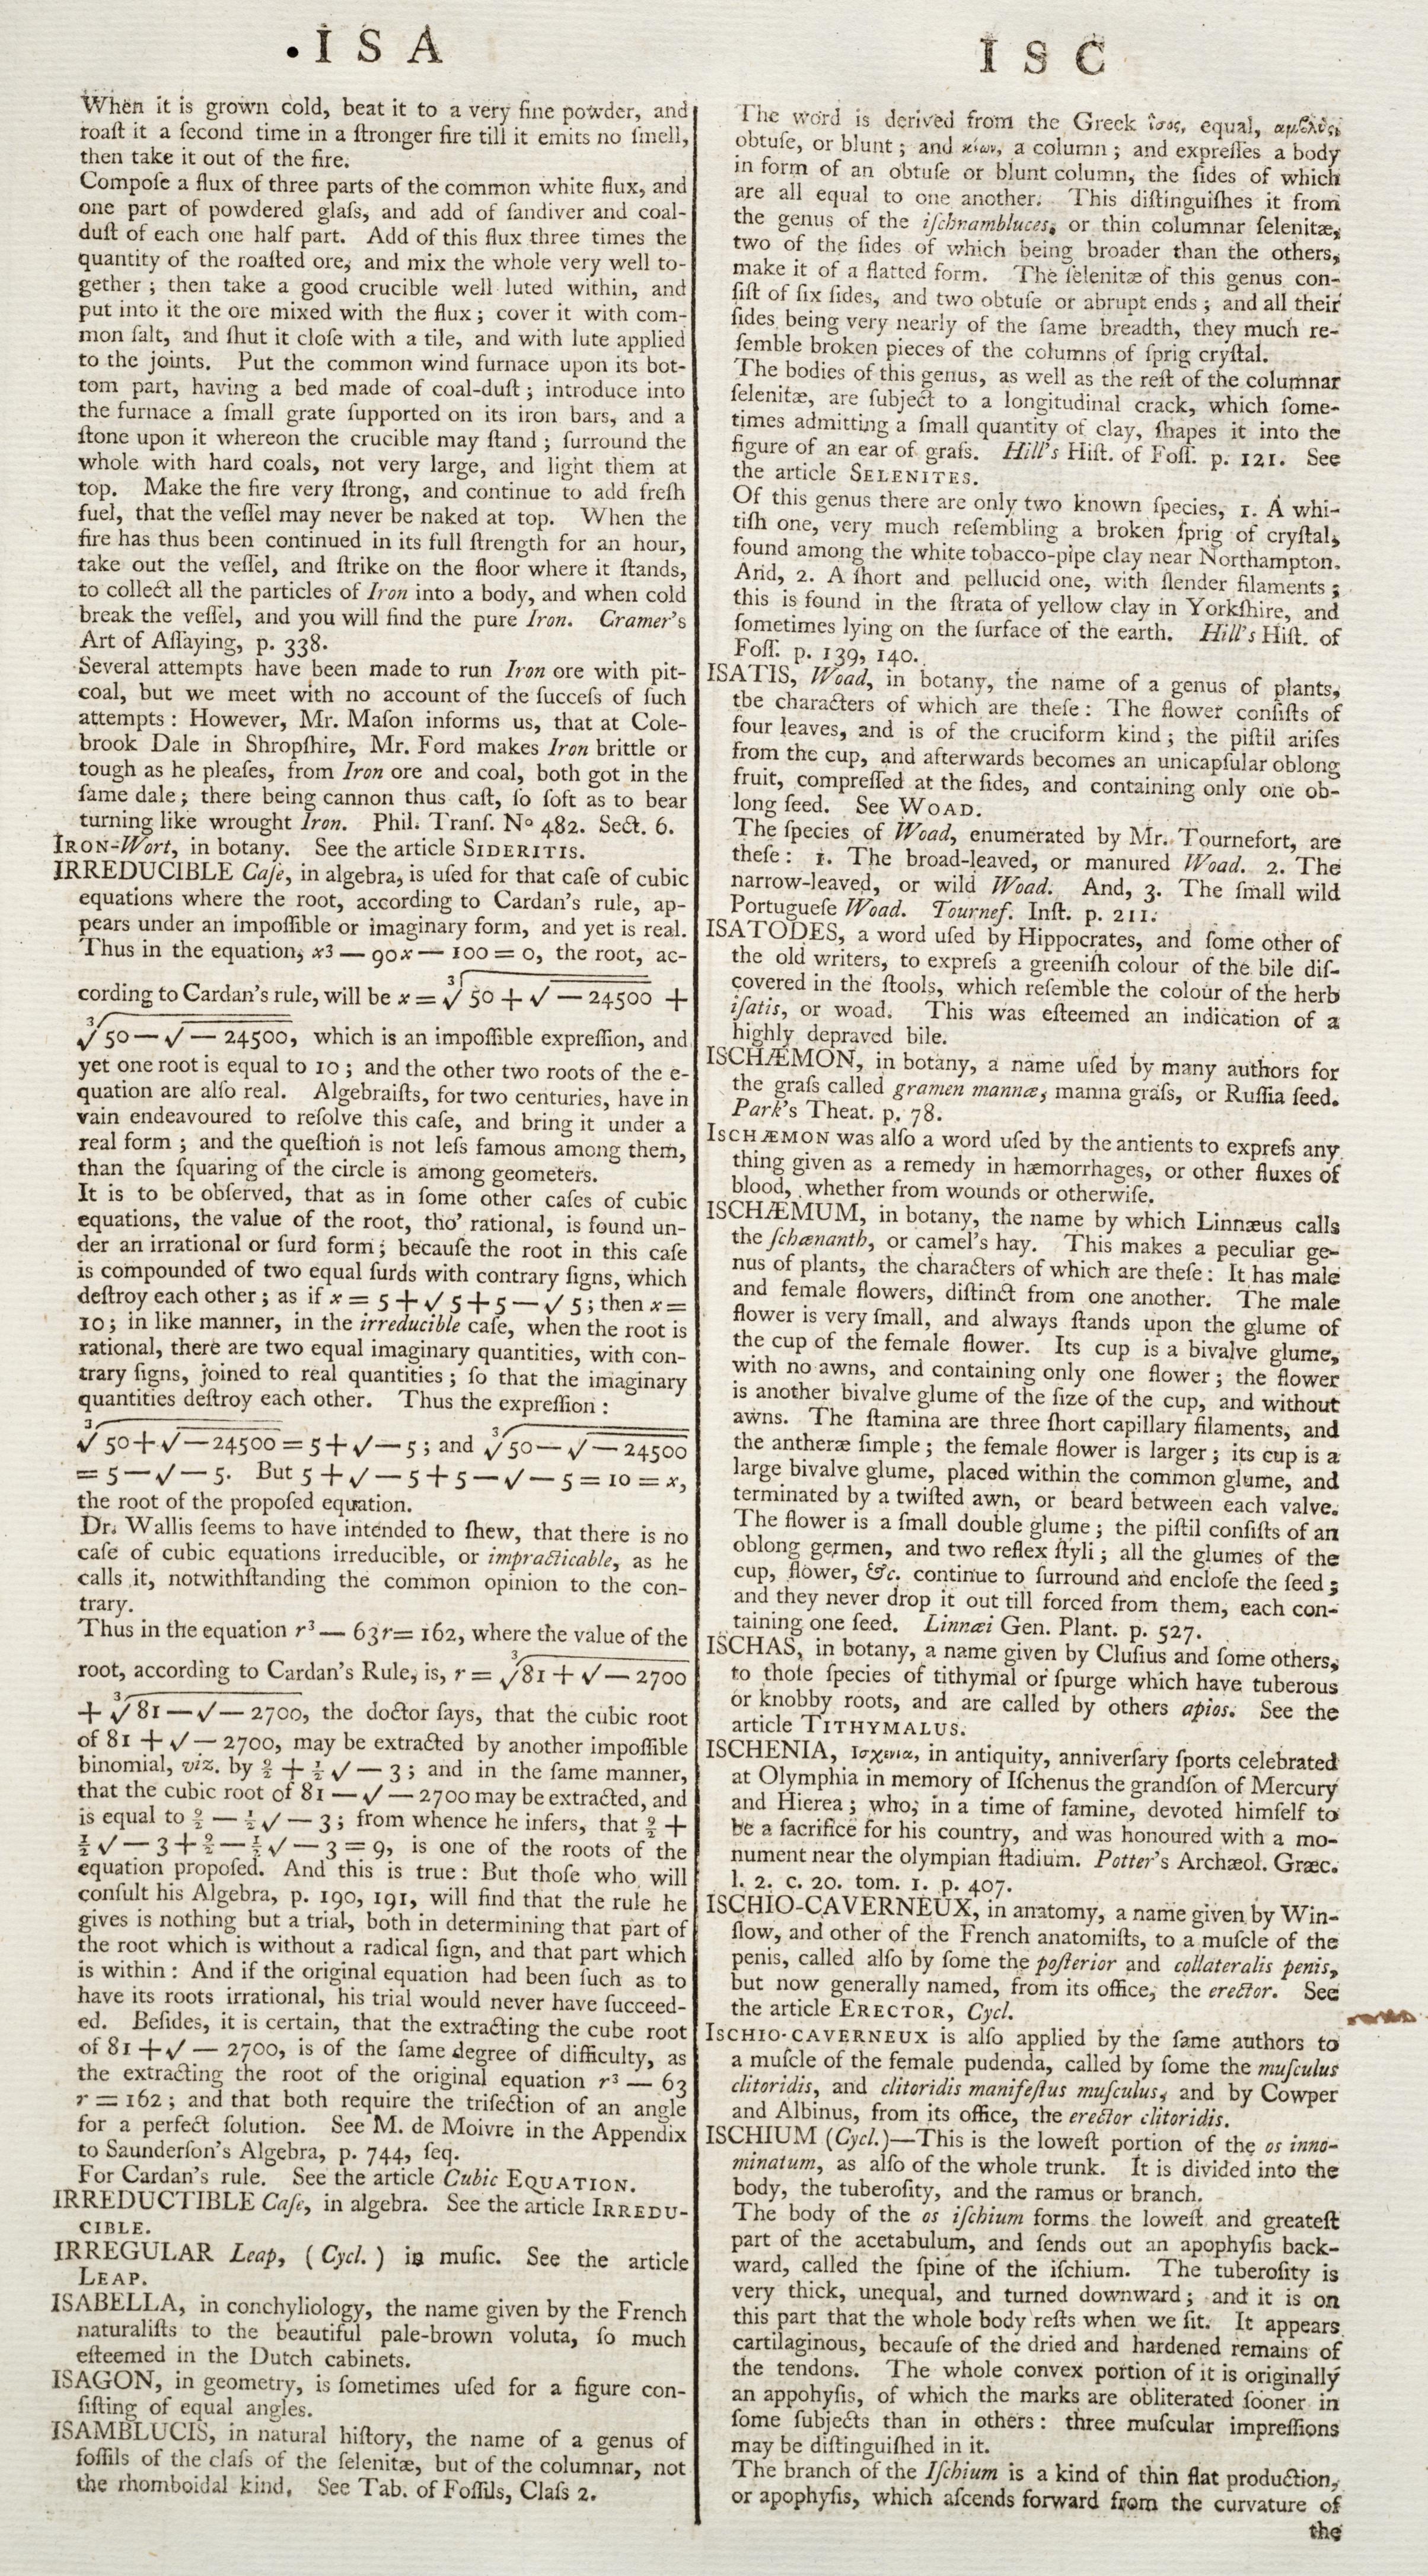 ISA
ISC
When it is grown cold, beat it to a very fine powder, and
roaſt it a ſecond time in a ſtronger fire till it emits no ſmell,
then take it out of the fire.
Compoſe a flux of three parts of the common white flux, and
one part of powdered glaſs, and add of ſandiver and coal-
duſt of each one half part. Add of this flux three times the
quantity of the roaſted ore, and mix the whole very well to-
gether ; then take a good crucible well luted within, and
put into it the ore mixed with the flux ; cover it with com-
mon ſalt, and ſhut it cloſe with a tile, and with lute applied
to the joints. Put the common wind furnace upon its bot-
tom part, having a bed made of coal-duſt ; introduce into
the furnace a ſmall grate ſupported on its iron bars, and a
ſtone upon it whereon the crucible may ſtand ; ſurround the
whole with hard coals, not very large, and light them at
top. Make the fire very ſtrong, and continue to add freſh
fuel, that the veſſel may never be naked at top. When the
fire has thus been continued in its full ſtrength for an hour,
take out the veſſel, and ſtrike on the floor where it ſtands,
to collect all the particles of Iron into a body, and when cold
break the veſſel, and you will find the pure Iron. Cramer's
Art of Aſſaying, p. 338.
Several attempts have been made to run Iron ore with pit-
coal, but we meet with no account of the ſucceſs of ſuch
attempts : However, Mr. Maſon informs us, that at Cole-
brook Dale in Shropſhire, Mr. Ford makes Iron brittle or
tough as he pleaſes, from Iron ore and coal, both got in the
ſame dale ; there being cannon thus caſt, ſo ſoft as to bear
turning like wrought Iron. Phil. Tranſ. Nº 482. Sect. 6.
IRON-Wort, in botany. See the article SIDERITIS.
IRREDUCIBLE Caſe, in algebra, is uſed for that caſe of cubic
equations where the root, according to Cardan's rule, ap-
pears under an impoſſible or imaginary form, and yet is real.
Thus in the equation, x³ — 90x — 100 = 0, the root, ac-
cording to Cardan's rule, will be x = ∛50 + √ — 24500 +
∛50 — √ — 24500, which is an impoſſible expreſſion, and
yet one root is equal to 10 ; and the other two roots of the e-
quation are alſo real. Algebraiſts, for two centuries, have in
vain endeavoured to reſolve this caſe, and bring it under a
real form ; and the queſtion is not leſs famous among them,
than the ſquaring of the circle is among geometers.
It is to be obſerved, that as in ſome other caſes of cubic
equations, the value of the root, tho' rational, is found un-
der an irrational or ſurd form ; becauſe the root in this caſe
is compounded of two equal ſurds with contrary ſigns, which
deſtroy each other ; as if x = 5 + √ 5 + 5 — √ 5 ; then x =
10 ; in like manner, in the irreducible caſe, when the root is
rational, there are two equal imaginary quantities, with con-
trary ſigns, joined to real quantities ; ſo that the imaginary
quantities deſtroy each other. Thus the expreſſion :
∛50 + √ — 24500 = 5 + √ — 5 ; and ∛50 — √ — 24500
= 5 — √ — 5. But 5 + √ — 5 + 5 — √ — 5 = 10 = x,
the root of the propoſed equation.
Dr. Wallis ſeems to have intended to ſhew, that there is no
caſe of cubic equations irreducible, or impracticable, as he
calls it, notwithſtanding the common opinion to the con-
trary.
Thus in the equation r³ — 63r = 162, where the value of the
root, according to Cardan's Rule, is, r = ∛81 + √ — 2700
+ ∛81 — √ — 2700, the doctor ſays, that the cubic root
of 81 + √ — 2700, may be extracted by another impoſſible
binomial, viz. by 9/2 + ½ √ — 3 ; and in the ſame manner,
that the cubic root of 81 — √ — 2700 may be extracted, and
is equal to 9/2 — ½ √ — 3 ; from whence he infers, that 9/2 +
½ √ — 3 + 9/2 — ½ √ — 3 = 9, is one of the roots of the
equation propoſed. And this is true : But thoſe who will
conſult his Algebra, p. 190, 191, will find that the rule he
gives is nothing but a trial, both in determining that part of
the root which is without a radical ſign, and that part which
is within : And if the original equation had been ſuch as to
have its roots irrational, his trial would never have ſucceed-
ed. Beſides, it is certain, that the extracting the cube root
of 81 + √ — 2700, is of the ſame degree of difficulty, as
the extracting the root of the original equation r³ — 63
r = 162 ; and that both require the triſection of an angle
for a perfect ſolution. See M. de Moivre in the Appendix
to Saunderſon's Algebra, p. 744, ſeq.
For Cardan's rule. See the article Cubic EQUATION.
IRREDUCTIBLE Caſe, in algebra. See the article IRREDU-
CIBLE.
IRREGULAR Leap, ( Cycl. ) in muſic. See the article
LEAP.
ISABELLA, in conchyliology, the name given by the French
naturaliſts to the beautiful pale-brown voluta, ſo much
eſteemed in the Dutch cabinets.
ISAGON, in geometry, is ſometimes uſed for a figure con-
ſiſting of equal angles.
ISAMBLUCIS, in natural hiſtory, the name of a genus of
foſſils of the claſs of the ſelenitæ, but of the columnar, not
the rhomboidal kind. See Tab. of Foſſils, Claſs 2.
The word is derived from the Greek ἴσος, equal, αμβλὺς,
obtuſe, or blunt ; and κίων, a column ; and expreſſes a body
in form of an obtuſe or blunt column, the ſides of which
are all equal to one another. This diſtinguiſhes it from
the genus of the iſchnambluces, or thin columnar ſelenitæ,
two of the ſides of which being broader than the others,
make it of a flatted form. The ſelenitæ of this genus con-
ſiſt of ſix ſides, and two obtuſe or abrupt ends ; and all their
ſides being very nearly of the ſame breadth, they much re-
ſemble broken pieces of the columns of ſprig cryſtal.
The bodies of this genus, as well as the reſt of the columnar
ſelenitæ, are ſubject to a longitudinal crack, which ſome-
times admitting a ſmall quantity of clay, ſhapes it into the
figure of an ear of graſs. Hill's Hiſt. of Foſſ. p. 121. See
the article SELENITES.
Of this genus there are only two known ſpecies, 1. A whi-
tiſh one, very much reſembling a broken ſprig of cryſtal,
found among the white tobacco-pipe clay near Northampton.
And, 2. A ſhort and pellucid one, with ſlender filaments ;
this is found in the ſtrata of yellow clay in Yorkſhire, and
ſometimes lying on the ſurface of the earth. Hill's Hiſt. of
Foſſ. p. 139, 140.
ISATIS, Woad, in botany, the name of a genus of plants,
tbe characters of which are theſe : The flower conſiſts of
four leaves, and is of the cruciform kind ; the piſtil ariſes
from the cup, and afterwards becomes an unicapſular oblong
fruit, compreſſed at the ſides, and containing only one ob-
long ſeed. See WOAD.
The ſpecies of Woad, enumerated by Mr. Tournefort, are
theſe : 1. The broad-leaved, or manured Woad. 2. The
narrow-leaved, or wild Woad. And, 3. The ſmall wild
Portugueſe Woad. Tournef. Inſt. p. 211.
ISATODES, a word uſed by Hippocrates, and ſome other of
the old writers, to expreſs a greeniſh colour of the bile diſ-
covered in the ſtools, which reſemble the colour of the herb
iſatis, or woad. This was eſteemed an indication of a
highly depraved bile.
ISCHÆMON, in botany, a name uſed by many authors for
the graſs called gramen mannæ, manna graſs, or Ruſſia ſeed.
Park's Theat. p. 78.
ISCHÆMON was alſo a word uſed by the antients to expreſs any
thing given as a remedy in hæmorrhages, or other fluxes of
blood, whether from wounds or otherwiſe.
ISCHÆMUM, in botany, the name by which Linnæus calls
the ſchænanth, or camel's hay. This makes a peculiar ge-
nus of plants, the characters of which are theſe : It has male
and female flowers, diſtinct from one another. The male
flower is very ſmall, and always ſtands upon the glume of
the cup of the female flower. Its cup is a bivalve glume,
with no awns, and containing only one flower ; the flower
is another bivalve glume of the ſize of the cup, and without
awns. The ſtamina are three ſhort capillary filaments, and
the antheræ ſimple ; the female flower is larger ; its cup is a
large bivalve glume, placed within the common glume, and
terminated by a twiſted awn, or beard between each valve.
The flower is a ſmall double glume ; the piſtil conſiſts of an
oblong germen, and two reflex ſtyli ; all the glumes of the
cup, flower, &c. continue to ſurround and encloſe the ſeed ;
and they never drop it out till forced from them, each con-
taining one ſeed. Linnæi Gen. Plant. p. 527.
ISCHAS, in botany, a name given by Cluſius and ſome others,
to thoſe ſpecies of tithymal or ſpurge which have tuberous
or knobby roots, and are called by others apios. See the
article TITHYMALUS.
ISCHENIA, Ισχενια, in antiquity, anniverſary ſports celebrated
at Olymphia in memory of Iſchenus the grandſon of Mercury
and Hierea ; who, in a time of famine, devoted himſelf to
be a ſacrifice for his country, and was honoured with a mo-
nument near the olympian ſtadium. Potter's Archæol. Græc.
l. 2. c. 20. tom. 1. p. 407.
ISCHIO-CAVERNEUX, in anatomy, a name given by Win-
ſlow, and other of the French anatomiſts, to a muſcle of the
penis, called alſo by ſome the poſterior and collateralis penis,
but now generally named, from its office, the erector. See
the article ERECTOR, Cycl.
ISCHIO-CAVERNEUX is alſo applied by the ſame authors to
a muſcle of the female pudenda, called by ſome the muſculus
clitoridis, and clitoridis manifeſtus muſculus, and by Cowper
and Albinus, from its office, the erector clitoridis.
ISCHIUM (Cycl.)—This is the loweſt portion of the os inno-
minatum, as alſo of the whole trunk. It is divided into the
body, the tuberoſity, and the ramus or branch.
The body of the os iſchium forms the loweſt and greateſt
part of the acetabulum, and ſends out an apophyſis back-
ward, called the ſpine of the iſchium. The tuberoſity is
very thick, unequal, and turned downward ; and it is on
this part that the whole body reſts when we ſit. It appears
cartilaginous, becauſe of the dried and hardened remains of
the tendons. The whole convex portion of it is originally
an appohyſis, of which the marks are obliterated ſooner in
ſome ſubjects than in others : three muſcular impreſſions
may be diſtinguiſhed in it.
The branch of the Iſchium is a kind of thin flat production,
or apophyſis, which aſcends forward from the curvature of
the